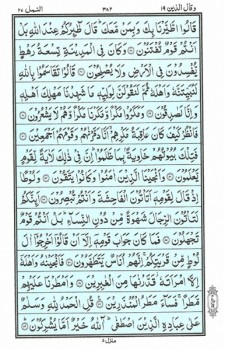 وقال الذين ١٩ ٣٨٢ النمل ٢٧
قَالُوا اطَّيَّرْنَا بِكَ وَبِمَنْ مَّعَكَ ۚ قَالَ طٰٓئِرُكُمْ عِنْدَ اللّٰهِ بَلْ
اَنْتُمْ قَوْمٌ تُفْتَنُوْنَ ۝ وَكَانَ فِي الْمَدِيْنَةِ تِسْعَةُ رَهْطٍ
يُّفْسِدُوْنَ فِي الْاَرْضِ وَلَا يُصْلِحُوْنَ ۝ قَالُوْا تَقَاسَمُوْا بِاللّٰهِ
لَنُبَيِّتَنَّهٗ وَاَهْلَهٗ ثُمَّ لَنَقُوْلَنَّ لِوَلِيِّهٖ مَا شَهِدْنَا مَهْلِكَ اَهْلِهٖ
وَاِنَّا لَصٰدِقُوْنَ ۝ وَمَكَرُوْا مَكْرًا وَّمَكَرْنَا مَكْرًا وَّهُمْ لَا يَشْعُرُوْنَ ۝
فَانْظُرْ كَيْفَ كَانَ عَاقِبَةُ مَكْرِهِمْ ۙ اَنَّا دَمَّرْنٰهُمْ وَقَوْمَهُمْ اَجْمَعِيْنَ ۝
فَتِلْكَ بُيُوْتُهُمْ خَاوِيَةً ۢ بِمَا ظَلَمُوْا ؕ اِنَّ فِيْ ذٰلِكَ لَاٰيَةً لِّقَوْمٍ
يَّعْلَمُوْنَ ۝ وَاَنْجَيْنَا الَّذِيْنَ اٰمَنُوْا وَكَانُوْا يَتَّقُوْنَ ۝ وَلُوْطًا
اِذْ قَالَ لِقَوْمِهٖٓ اَتَاْتُوْنَ الْفَاحِشَةَ وَاَنْتُمْ تُبْصِرُوْنَ ۝ اَئِنَّكُمْ
لَتَاْتُوْنَ الرِّجَالَ شَهْوَةً مِّنْ دُوْنِ النِّسَآءِ ؕ بَلْ اَنْتُمْ قَوْمٌ
تَجْهَلُوْنَ ۝ فَمَا كَانَ جَوَابَ قَوْمِهٖٓ اِلَّآ اَنْ قَالُوْٓا اَخْرِجُوْٓا اٰلَ
لُوْطٍ مِّنْ قَرْيَتِكُمْ ۚ اِنَّهُمْ اُنَاسٌ يَّتَطَهَّرُوْنَ ۝ فَاَنْجَيْنٰهُ وَاَهْلَهٗٓ
اِلَّا امْرَاَتَهٗ ۫ قَدَّرْنٰهَا مِنَ الْغٰبِرِيْنَ ۝ وَاَمْطَرْنَا عَلَيْهِمْ
مَّطَرًا ۚ فَسَآءَ مَطَرُ الْمُنْذَرِيْنَ ۝ قُلِ الْحَمْدُ لِلّٰهِ وَسَلٰمٌ
عَلٰى عِبَادِهِ الَّذِيْنَ اصْطَفٰى ؕ آٰللّٰهُ خَيْرٌ اَمَّا يُشْرِكُوْنَ ۝
منزل ٥